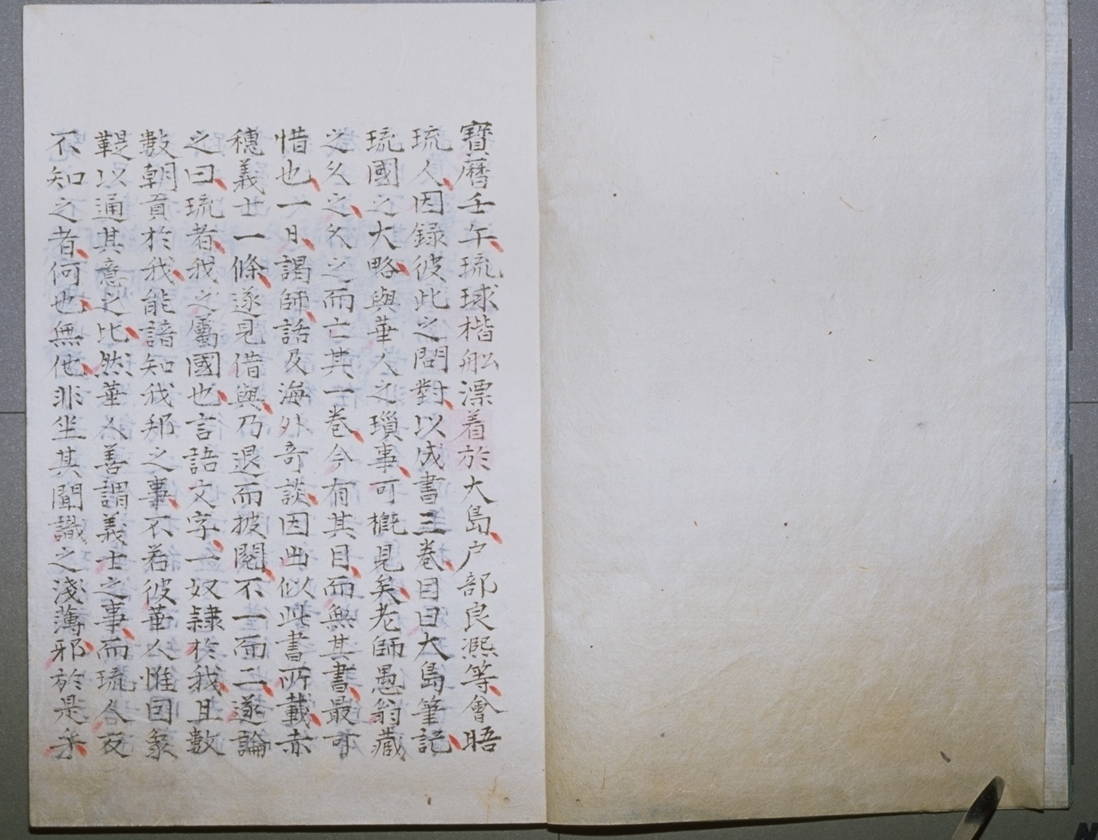 寶暦壬午琉球楷舩漂着於大島户部良凞等會晤
琉人因録彼此之問對以成書三巻目曰大島筆記
琉國之大略與華人之瑣事可概見矣老師愚翁藏
之久之久之而亡其一巻今有其目而無其書最可
惜也一日謁師話及海外奇談因出似此書所載赤
穗義士一條遂見借與乃退而披閲不一而二遂論
之曰琉者我之屬國也言語文字一奴隷於我且數
數朝貢於我能諳知我邦之事不若彼華人惟因象
鞮以通其意之比然華人善謂義士之事而琉人反
不知之者何也無他非坐其聞識之淺薄邪於是乎